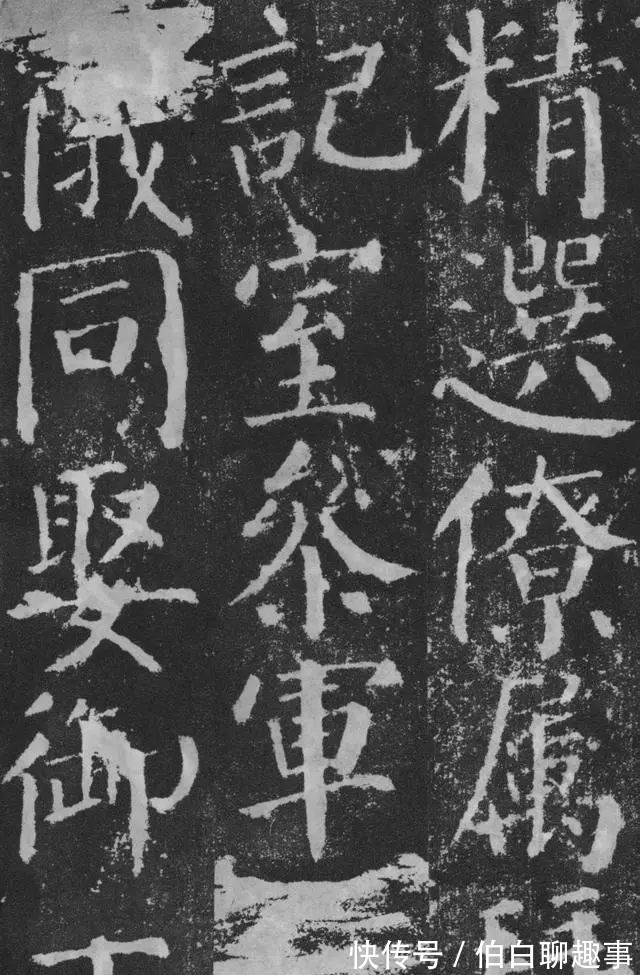 精選僚属
記室參軍
同娶御
快传号/伯白聊趣事